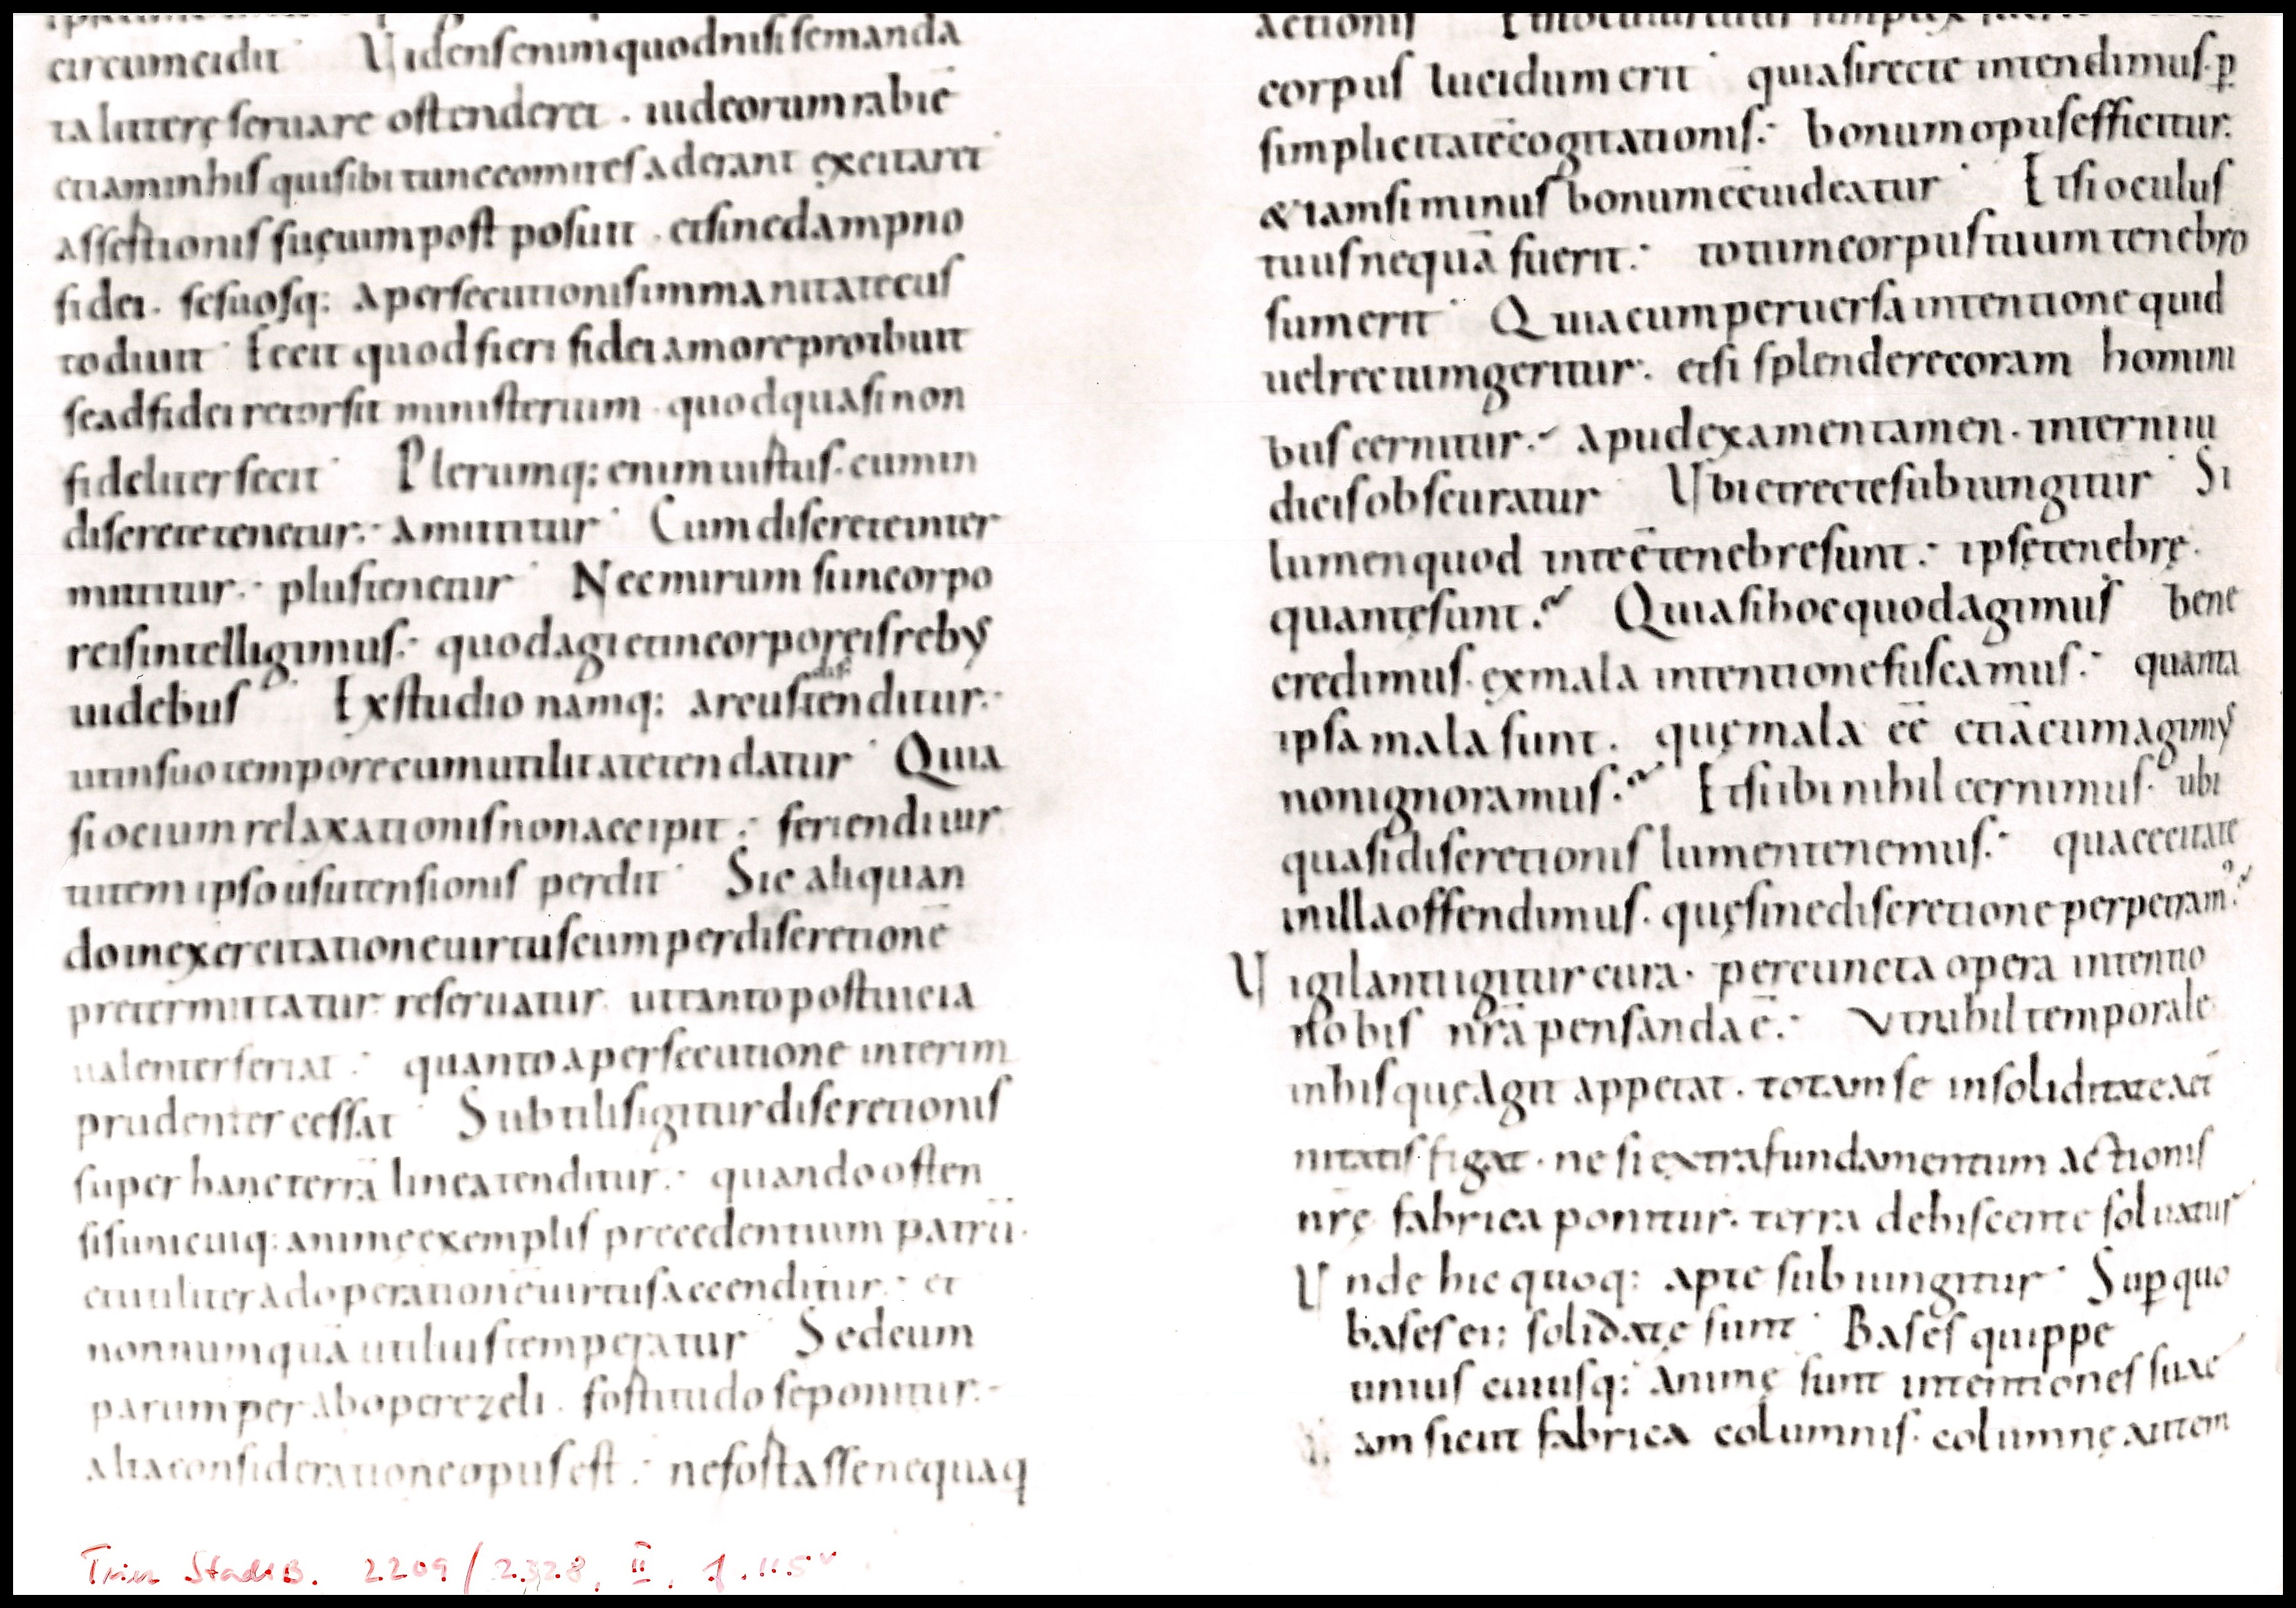 circumcidit· Uidens enim quod nisi se manda
ta litterę seruare ostenderet . iudeorum rabiē
etiam in his qui sibi tunc comites aderant excitaret·
assestionis suę uim post posuit . et sine dampno
fidei . se suosq: a persecutionis immanitate cus
todiuit· Fecit quod fieri fidei amore proibuit
se ad fidei retorsit ministerium . quod quasi non
fideliter fecit· Plerumq: enim uistus . cum in
discrete tenetur:· amittitur· Cum discrete inter
mittitur:· plus tenetur· Nec mirum si in corpo
reis intelligimus:· quod agi et in corporeis rebus
uidebus Ex studio namq: arcus distenditur:·
ut in suo tempore cum utilitate tendatur· Quia
si ocium relaxationis non accipit:· feriendi uir
tutem ipso usu tensionis perdit· Sic aliquan
do in exercitatione uirtus cum per discretionē
pretermittatur reseruatur ut tanto post uicia
ualenter feriat:· quanto a persecutione interim
prudenter cessat· Subtilis igitur discretionis
super hanc terrā linea tenditur:· quando osten
sis unicuiq: animę exemplis precedentium patrū·
et utiliter ad operationē uirtus accenditur:· et
nonnumquā utilius temperatur· Sed cum
parumper ab opere zeli . fostitudo seponitur:·
alta consideratione opus est:· ne fostasse nequaq
actionis
corpus lucidum erit· quia si recte intendimus . p̱
simplicitatē cogitationis:· bonum opus efficitur.
& iam si minus bonum eē uideatur· Et si oculus
tuus nequā fuerit:· totum corpus tuum tenebro
sum erit· Quia cum peruersa intentione quid
uel rectum geritur:· etsi splendere coram homini
bus cernitur:· apud examen tamen . interni iu
dicis obscuratur Ubi et recte subiungitur· Si
lumen quod in te ē tenebre sunt:· ipsę tenebrę
quantę sunt.~ Quia si hoc quod agimus bene
credimus . ex mala intentione fuscamus:· quanta
ipsa mala sunt . quę mala eē etiā cum agimus
non ignoramus.~ Et si ibi nihil cernimus . ubi
quasi discretionis lumen tenemus:· qua cecitate
in illa offendimus . quę sine discretione perpetram?
Uigilanti igitur cura . per cuncta opera intentio
nobis nrā pensanda ē:· Ut nihil temporale
in his quę agit appetat . totam se in soliditate aet
nitatis figat . ne si extra fundamentum actionis
nrę fabrica ponitur . terra dehiscente soluatur
Unde hic quoq: apte subiungitur· Sup quo
bases ei: solidatę sunt· Bases quippe
unius cuiusq: animę sunt intentiones suae
am sicut fabrica columnis . columnę autem
Trier StadtB. 2209/2328, II, f. 115v